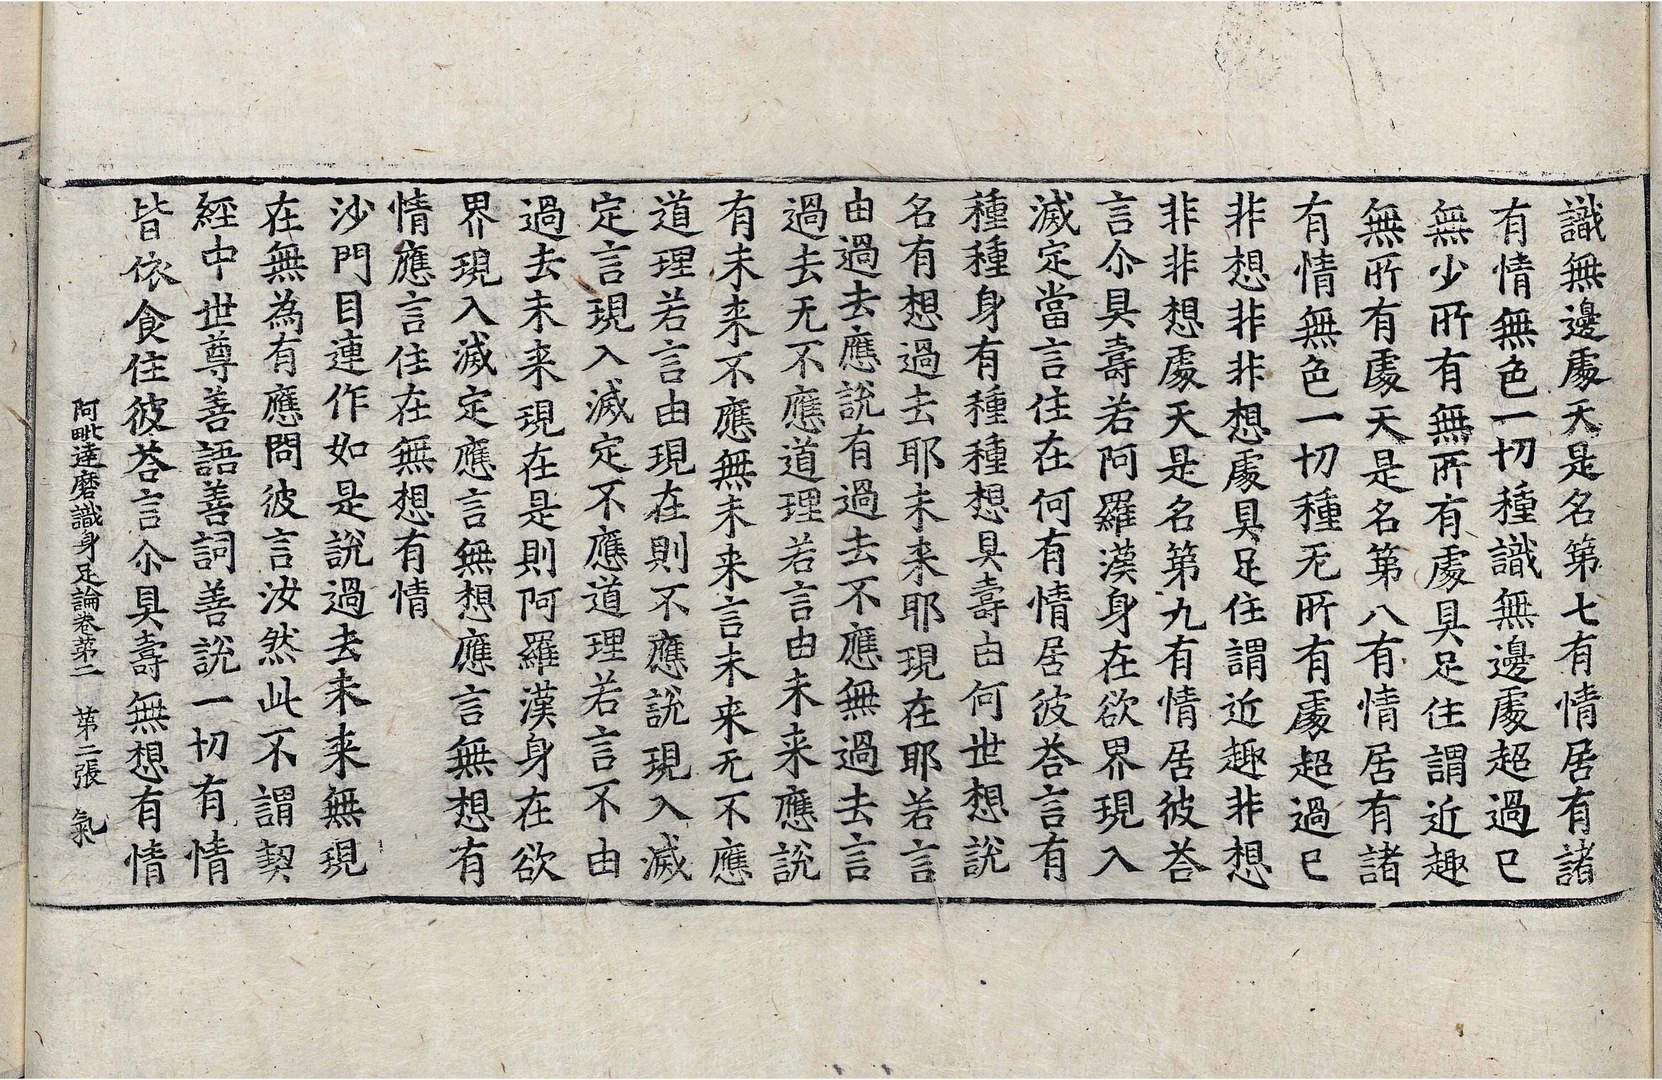 識無邊處天是名第七有情居有諸
有情無色一切種識無邊處超過已
無少所有無所有處具足住謂近趣
無所有處天是名第八有情居有諸
有情無色一切種无所有處超過已
非想非非想處具足住謂近趣非想
非非想處天是名第九有情居彼荅
言尒具壽若阿羅漢身在欲界現入
滅定當言住在何有情居彼荅言有
種種身有種種想具壽由何世想說
名有想過去耶未来耶現在耶若言
由過去應說有過去不應無過去言
過去无不應道理若言由未来應說
有未来不應無未来言未来无不應
道理若言由現在則不應說現入滅
定言現入滅定不應道理若言不由
過去未来現在是則阿羅漢身在欲
界現入滅定應言無想應言無想有
情應言住在無想有情
沙門目連作如是說過去未来無現
在無為有應問彼言汝然此不謂契
經中世尊善語善詞善說一切有情
皆依食住彼荅言尒具壽無想有情
阿毗達磨識身足論卷苐二　苐二張　氣